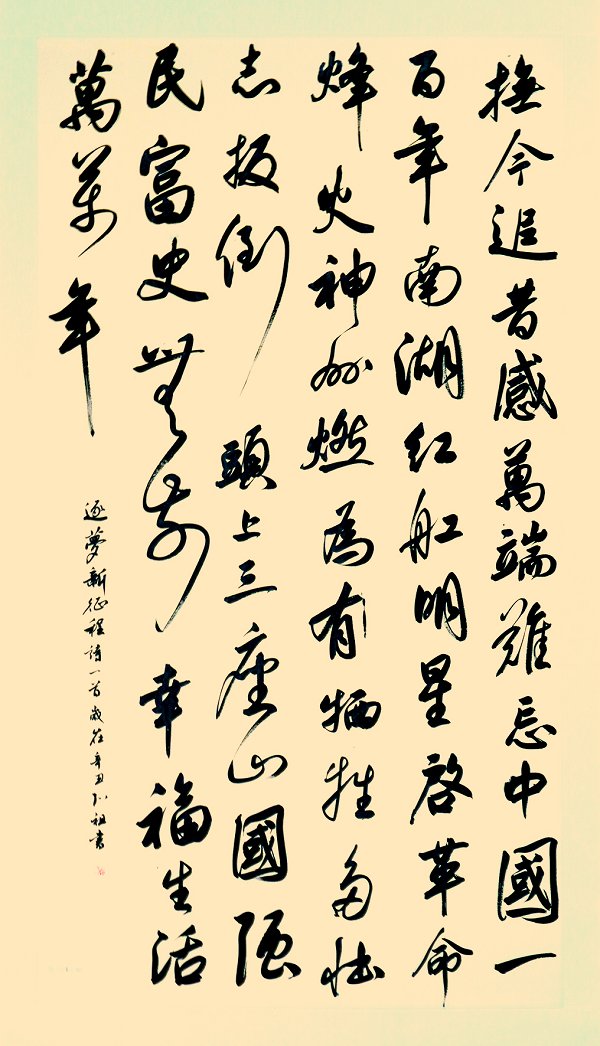 撫今追昔感萬端難忘中國一
百年南湖紅船明星啓革命
烽火神州燃為有犧牲多壯
志扳倒頭上三座山國強
民富史無前幸福生活
萬萬年
逐夢新征程詩一首歲在辛丑弘祖書